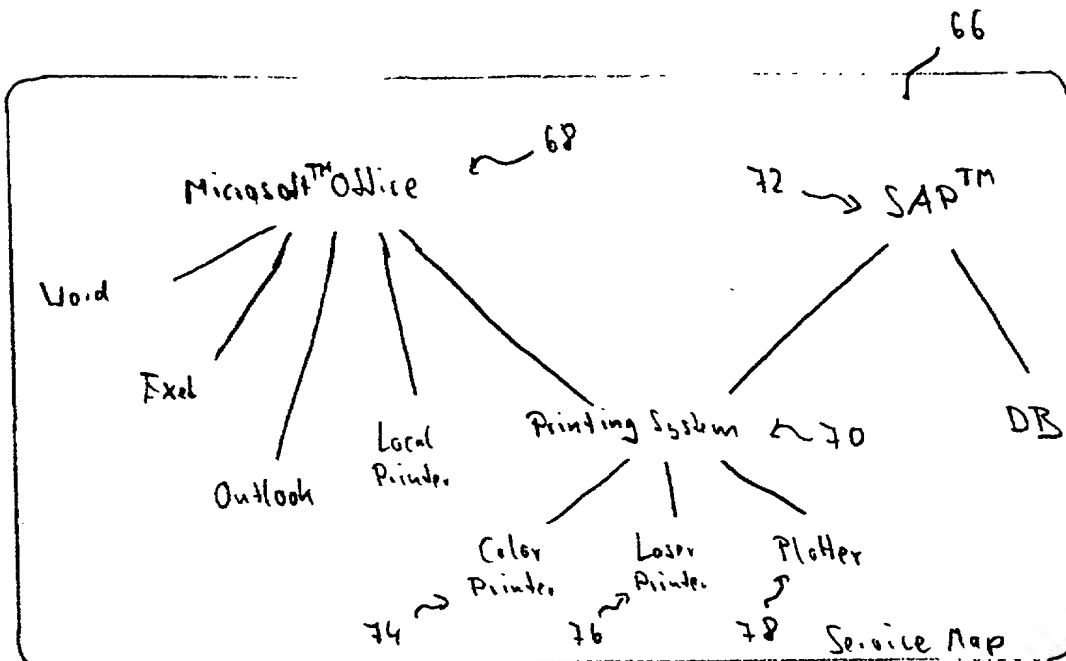 66
68
Microsoft™ Office
72
SAP™
Word
Exel
Local
Printer
Printing System
70
DB
Outlook
Color
Printer
Laser
Printer
Plotter
74
76
78
Service Map